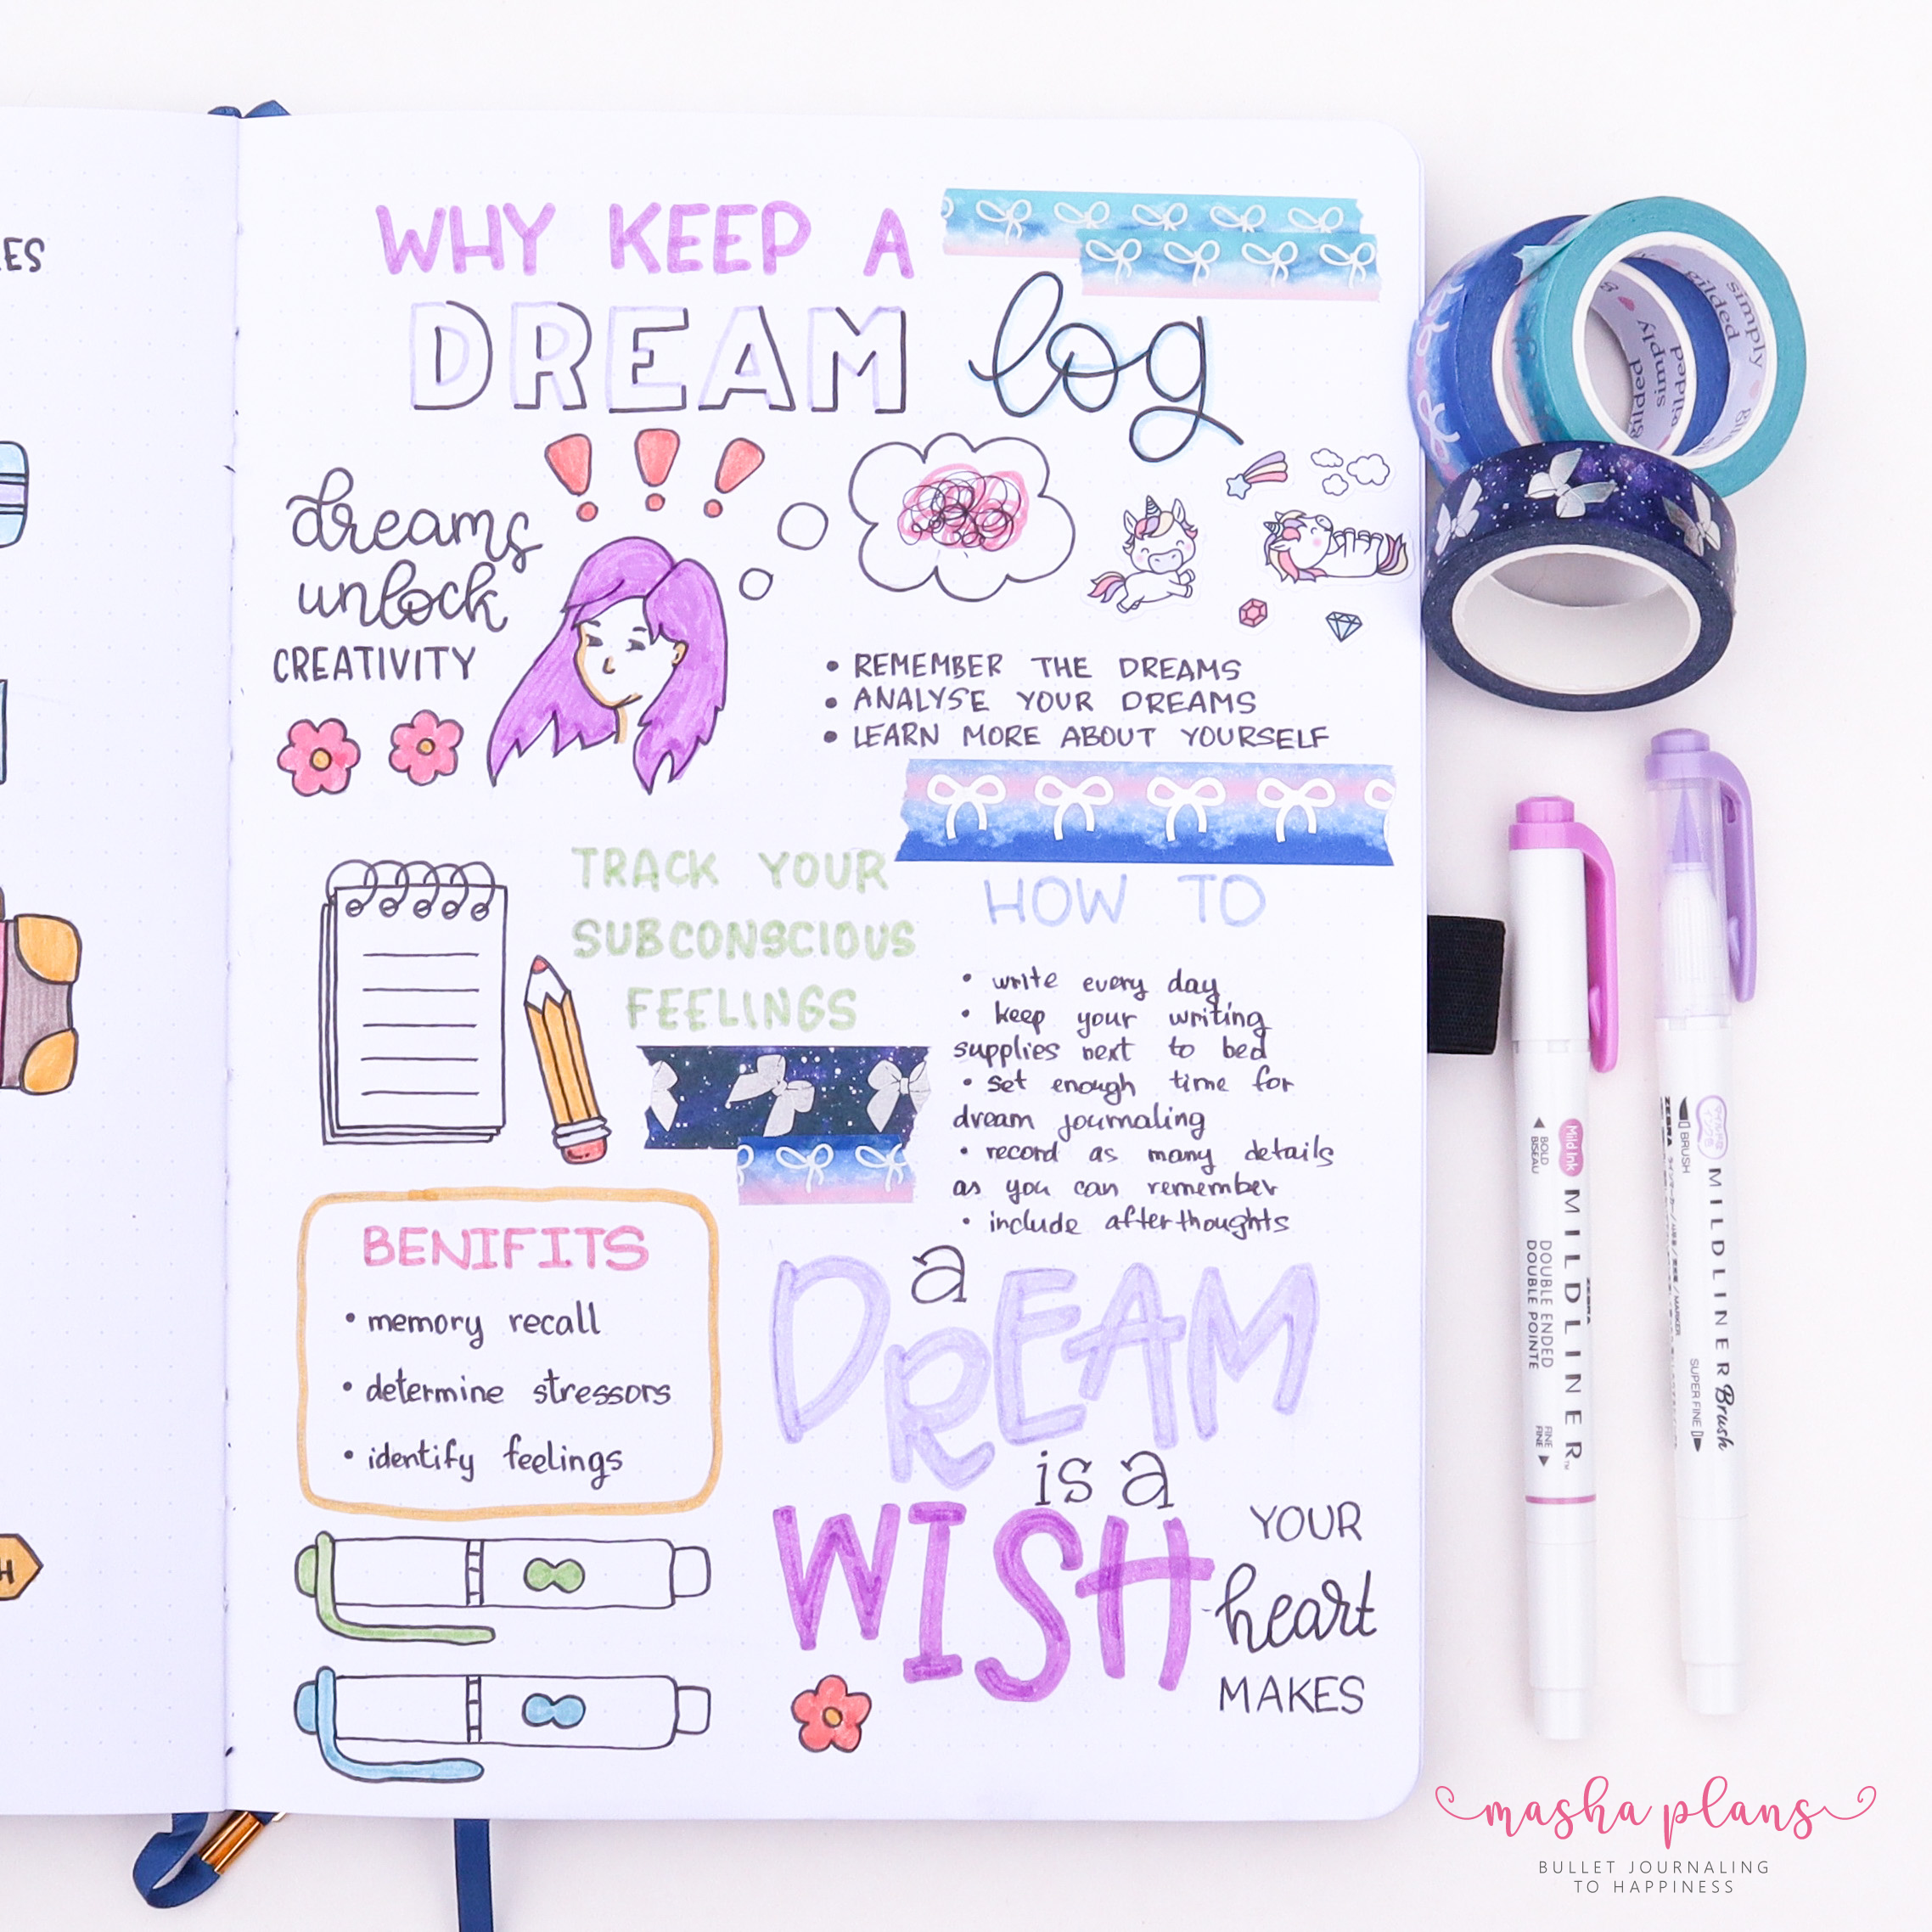 ES
WHY KEEP A
DREAM log
dreams
unlock
CREATIVITY
• REMEMBER THE DREAMS
• ANALYSE YOUR DREAMS
• LEARN MORE ABOUT YOURSELF
TRACK YOUR
SUBCONSCIOUS
FEELINGS
HOW TO
• write every day
• keep your writing
supplies next to bed
• set enough time for
dream journaling
• record as many details
as you can remember
• include afterthoughts
BENIFITS
• memory recall
• determine stressors
• identify feelings
a
DREAM
is a
WISH
YOUR
heart
MAKES
H
simply
gilded
simply
gilded
Mild Ink
MILDLINER
ZEBRA
BOLD
BISEAU
DOUBLE ENDED
DOUBLE POINTE
FINE
FINE
MILDLINER Brush
ZEBRA
BRUSH
SUPER FINE
masha plans
BULLET JOURNALING
TO HAPPINESS